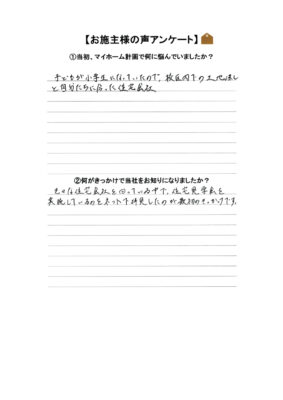 【お施主様の声アンケート】
①当初、マイホーム計画で何に悩んでいましたか？
子どもが小学生になっていたので、校区内での土地探し
と自分たちに合った住宅会社
②何がきっかけで当社をお知りになりましたか？
色々な住宅会社を回っている中で、住宅見学会を
実施しているのをネットで拝見したのが最初のきっかけです。